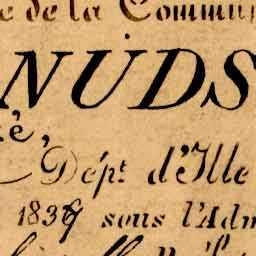 e de la Commu
NUDS
è,
Dépt. d'Ille
sous l'Adm